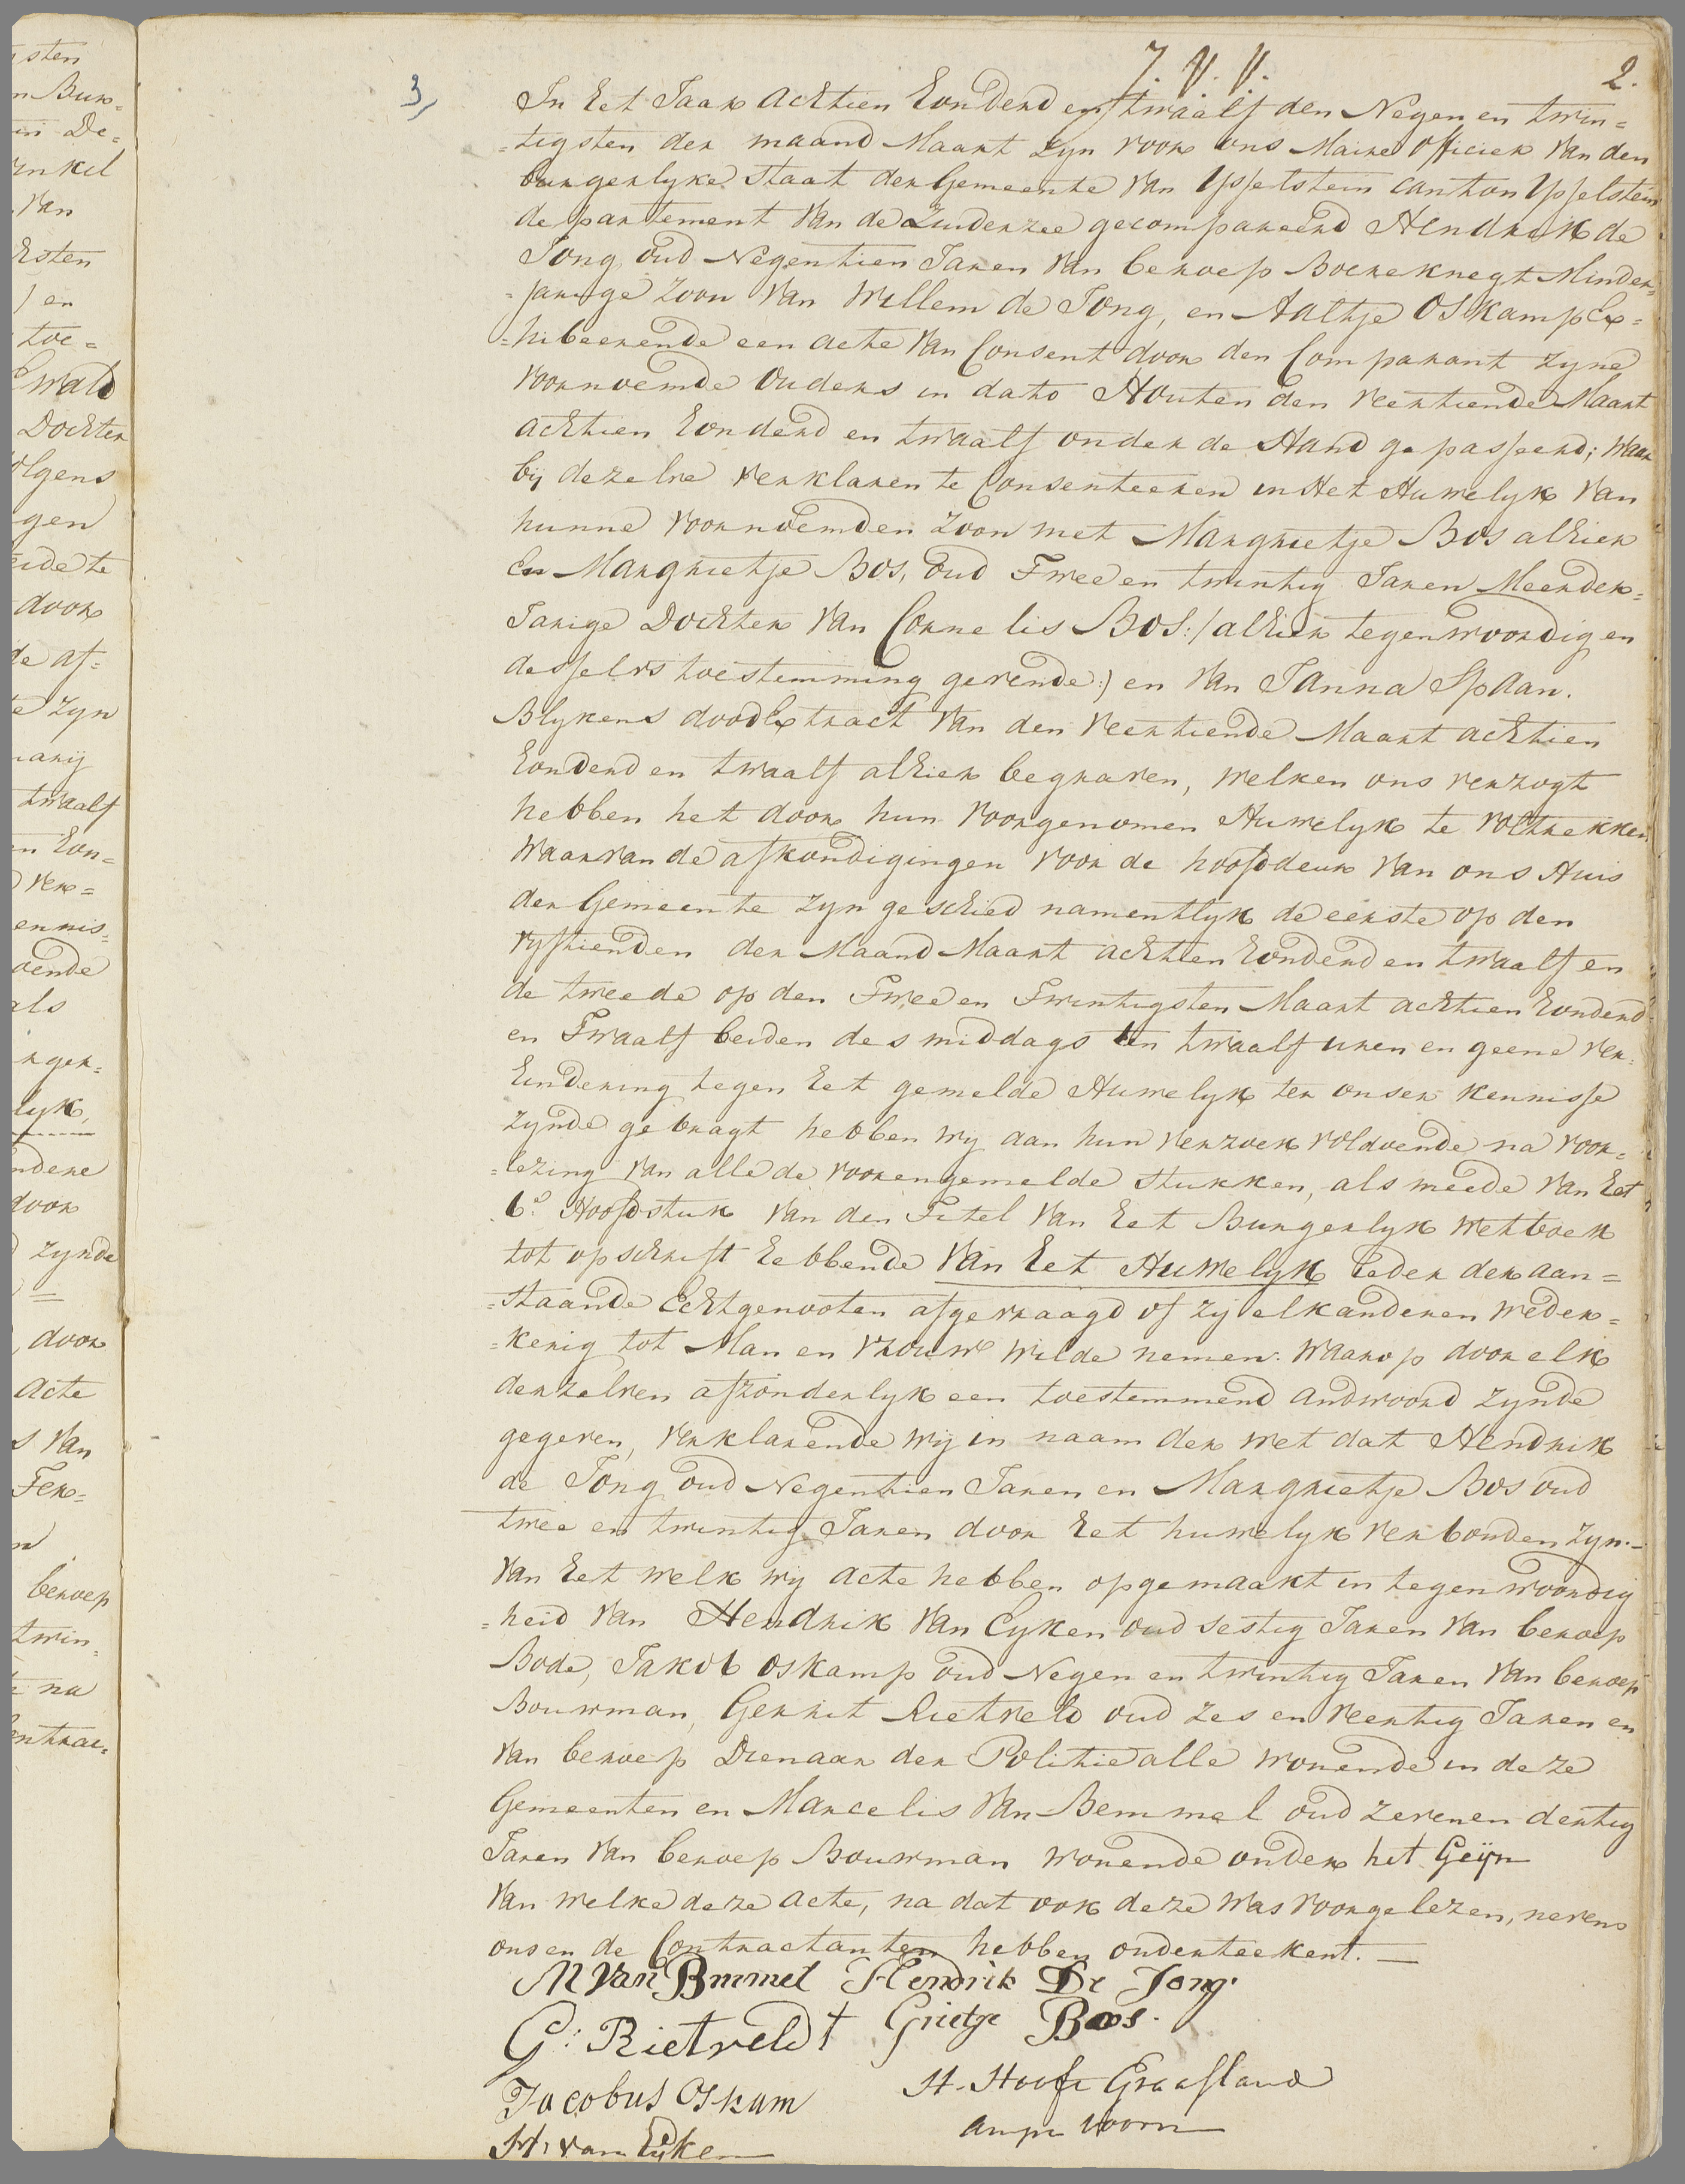 J. V. V.
2.
3,
In het Jaar achtien honderd en twaalf den Negen en twin=
=tigsten der maand Maart zyn voor ons Maire officier van den
burgerlyke staat der Gemeente van Ysselstein canton Ysselstein
departement van de Zuiderzee gecompareerd Hendrik de
Jong oud Negentien Jaren van beroep Boereknegt Minder=
=jarige zoon van Willem de Jong, en Aaltje Oskamp Ex=
=hibeerende een acte van Consent door den Comparant zyne
voornoemde Ouders in dato Houten den veertiende Maart
achtien honderd en twaalf onder de Hand gepasseerd; waar
bij dezelve verklaren te Consenteeren in Het Huwelyk van
hunne voornoemden zoon met Margrietje Bos alhier
En Margrietje Bos, oud Twee en twintig Jaren Meerder=
Jarige Dochter van Cornelis Bos:/ alhier tegenwoordig en
desselvs toestemming gevende:) en van Janna Spaan.
Blykens dood Extract van den veertiende Maart achtien
honderd en twaalf alhier begraven, welken ons verzogt
hebben het door hun voorgenomen Huwelyk te voltrekken
waarvan de afkondigingen voor de hoofddeur van ons Huis
der Gemeente zyn geschied namentlyk de eerste op den
vyftienden der Maand Maart achtien honderd en twaalf en
de tweede op den Twee en Twintigsten Maart achtien honderd
en Twaalf beiden des middags ten twaalf uren en geene ver=
hindering tegen het gemelde Huwelyk ter onser kennisse
zynde gebragt hebben wy aan hun verzoek voldoende na voor=
=lezing van alle de vorengemelde stukken, als meede van het
6e Hoofdstuk van den Titel van het Burgerlyk wetboek
tot opschrift hebbende van het Huwelyk ieder der aan=
=staande Echtgenooten afgevraagd of zy elkanderen weder=
=kerig tot Man en vrouw wilde nemen. waarop door elk
derzelven afzonderlyk een toestemmend andwoord zynde
gegeven, verklarende wij in naam der wet dat Hendrik
de Jong oud Negentien Jaren en Margrietje Bos oud
twee en twintig Jaren door het huwelyk verbonden zyn.—
van het welk wy acte hebben opgemaakt in tegenwoordig
=heid van Hendrik van Eyken oud sestig Jaren van beroep
Bode, Jakob Oskamp oud Negen en twintig Jaren van beroep
Bouwman, Gerrit Rietveld oud zes en veertig Jaren en
van beroep Dienaar der Politie alle wonende in deze
Gemeenten en Marcelis van Bemmel oud zeven en dertig
Jaren van beroep Bouwman wonende onder het Geijn
van welke deze acte, na dat ook deze was voorgelezen, nevens
ons en de Contractanten hebben onderteekent.—
M Van Bmmel Hendrik De Jong.
G: Rietveldt Grietge Bos.
Jacobus Oskam H. Hooft Graafland
H. van Eyken